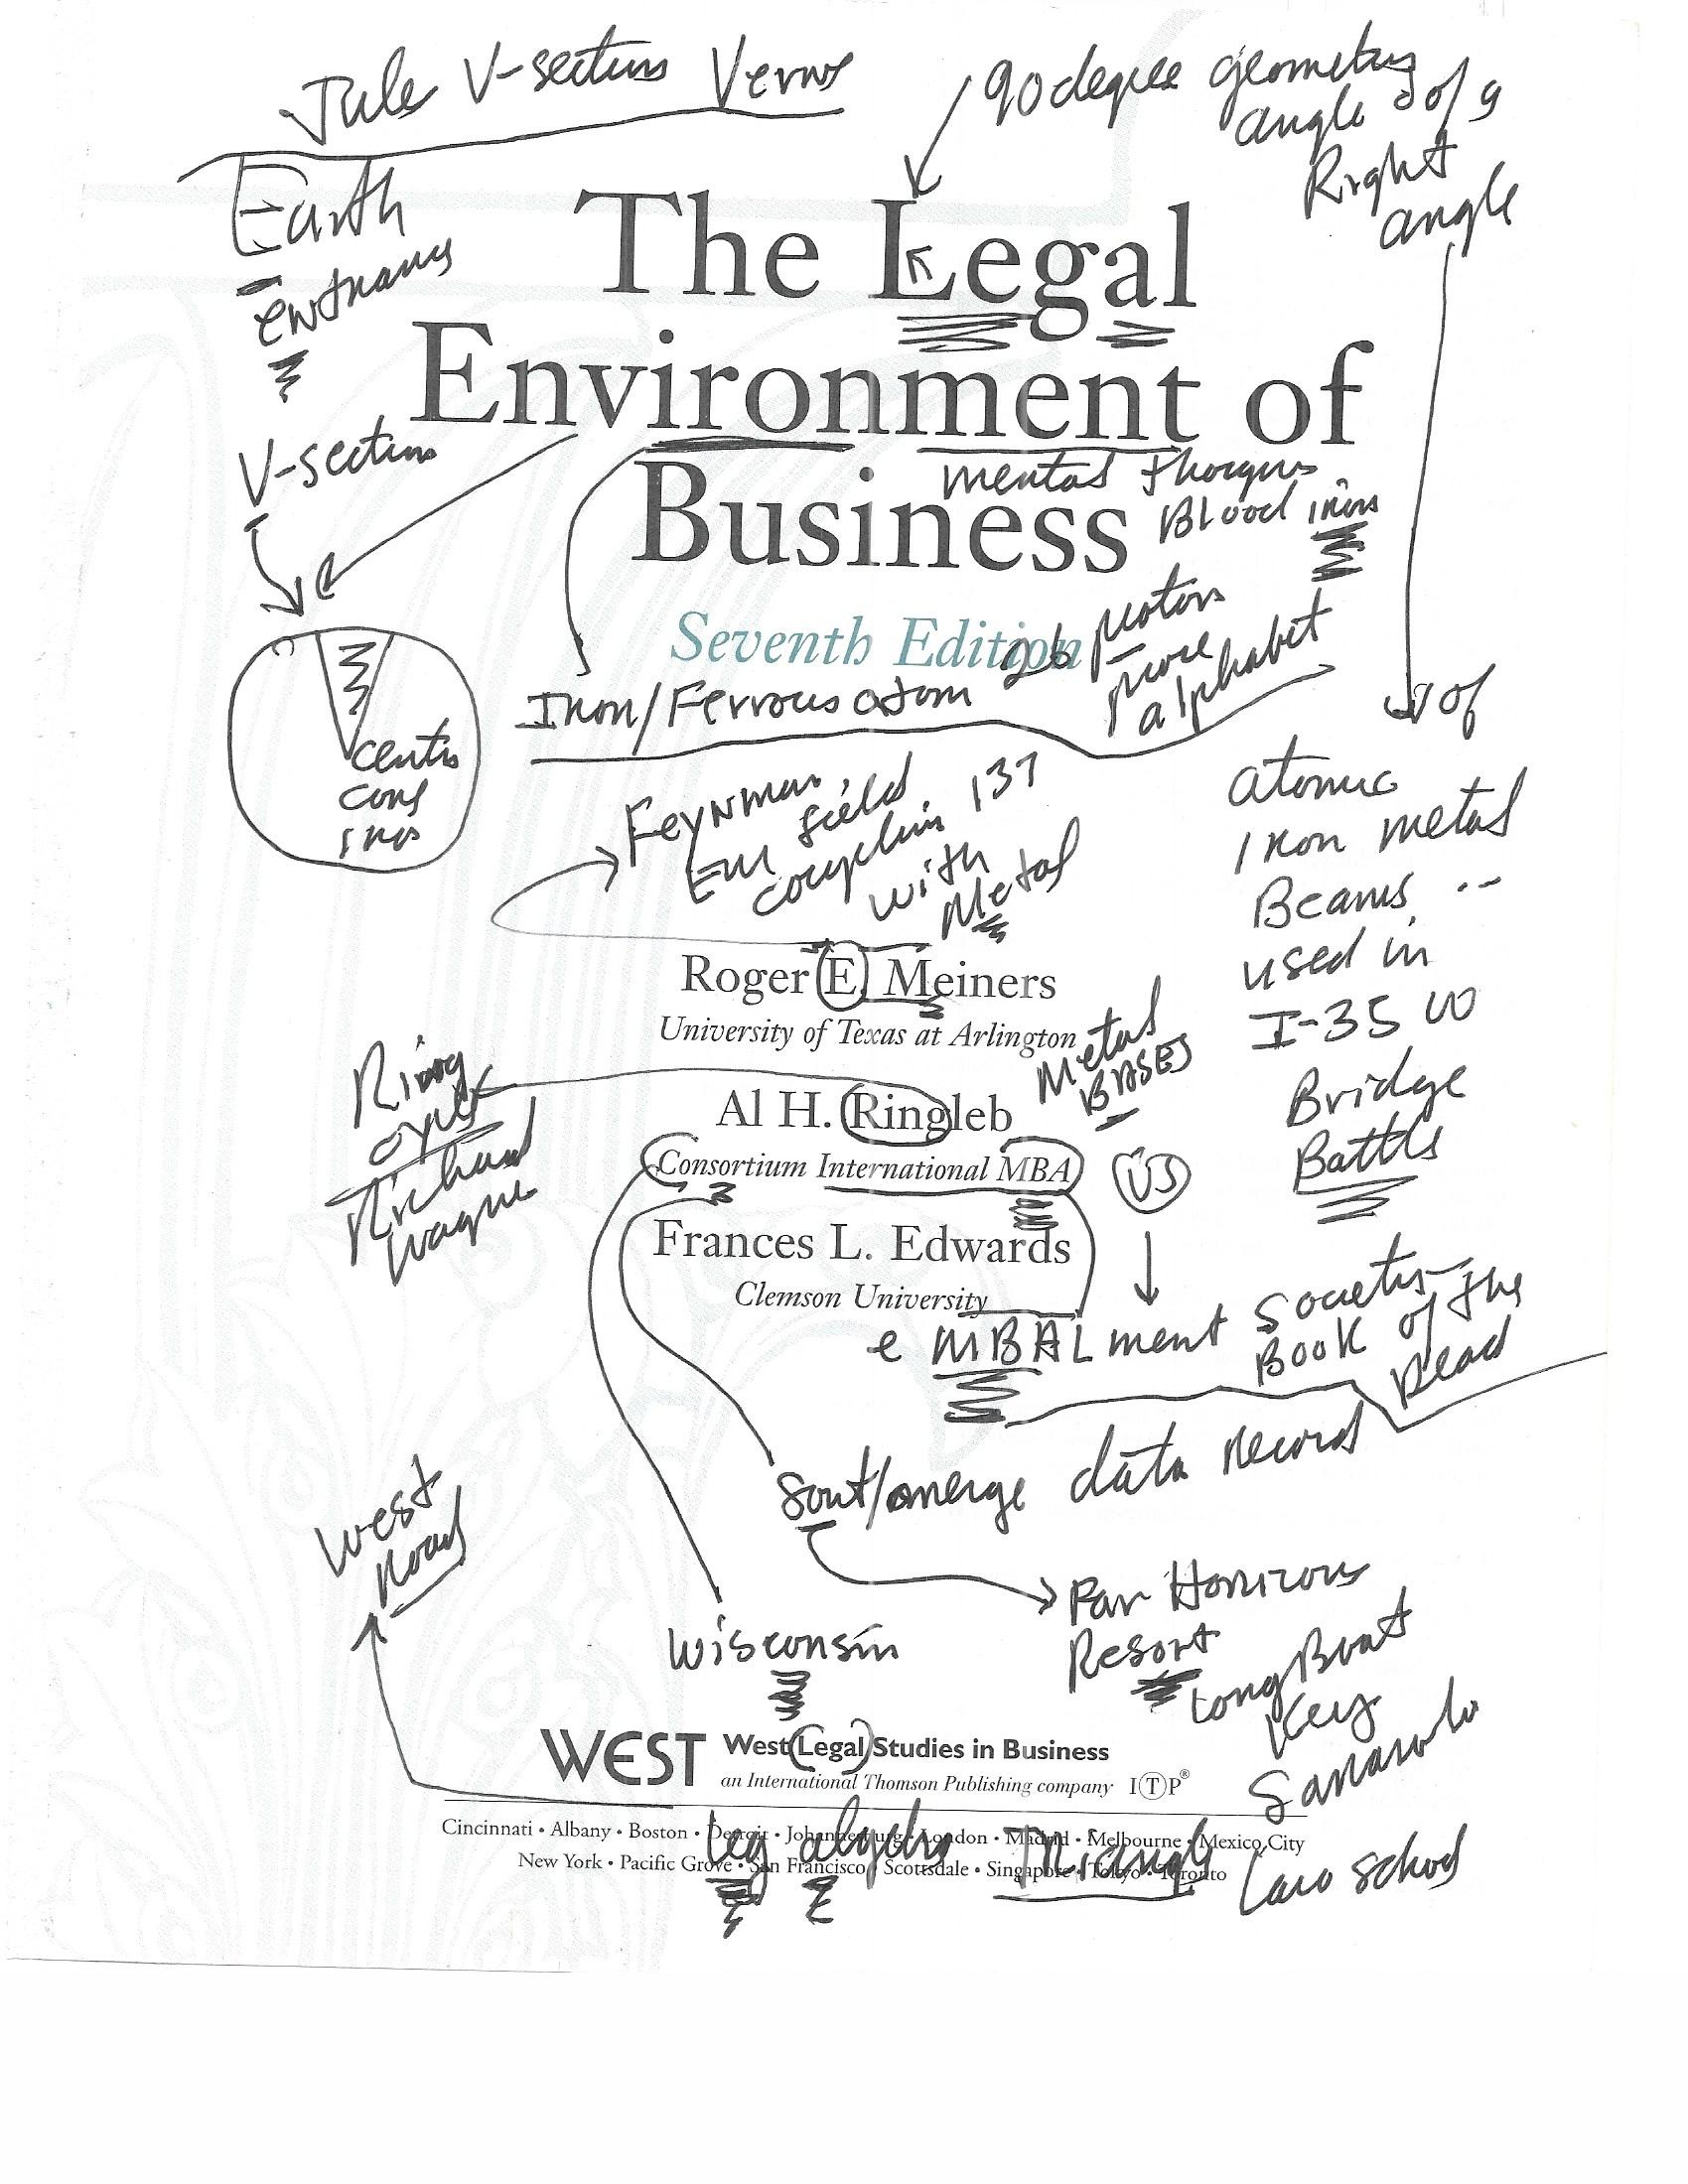 Jule V-section Verns
90 degree geometry
angle of a
Right
angle
Earth
entrance
The Legal
Environment of
Business
V-section
mental
Blood iron
Seventh Edition
26 protons
more
alphabet
Iron/Ferrous atom
of
atomic
iron metal
Beams
used in
I-35 W
Bridge
Battle
core
Feynman
EM field
coupling 137
with
Metal
Roger E. Meiners
University of Texas at Arlington
Metal
BASES
Ring
cycle
Richard
Wagner
Al H. Ringleb
Consortium International MBA
VS
Frances L. Edwards
Clemson University
e MBAL ment
Society
Book of the
Dead
Sort/merge data record
West
Road
Far Horizons
Resort
Long Boat
Key
Sarasota
Wisconsin
WEST West Legal Studies in Business
an International Thomson Publishing company ITP®
Cincinnati • Albany • Boston • Detroit • Johannesburg • London • Madrid • Melbourne • Mexico City
New York • Pacific Grove • San Francisco • Scottsdale • Singapore • Tokyo • Toronto
Leg algebra Triangle
Law school